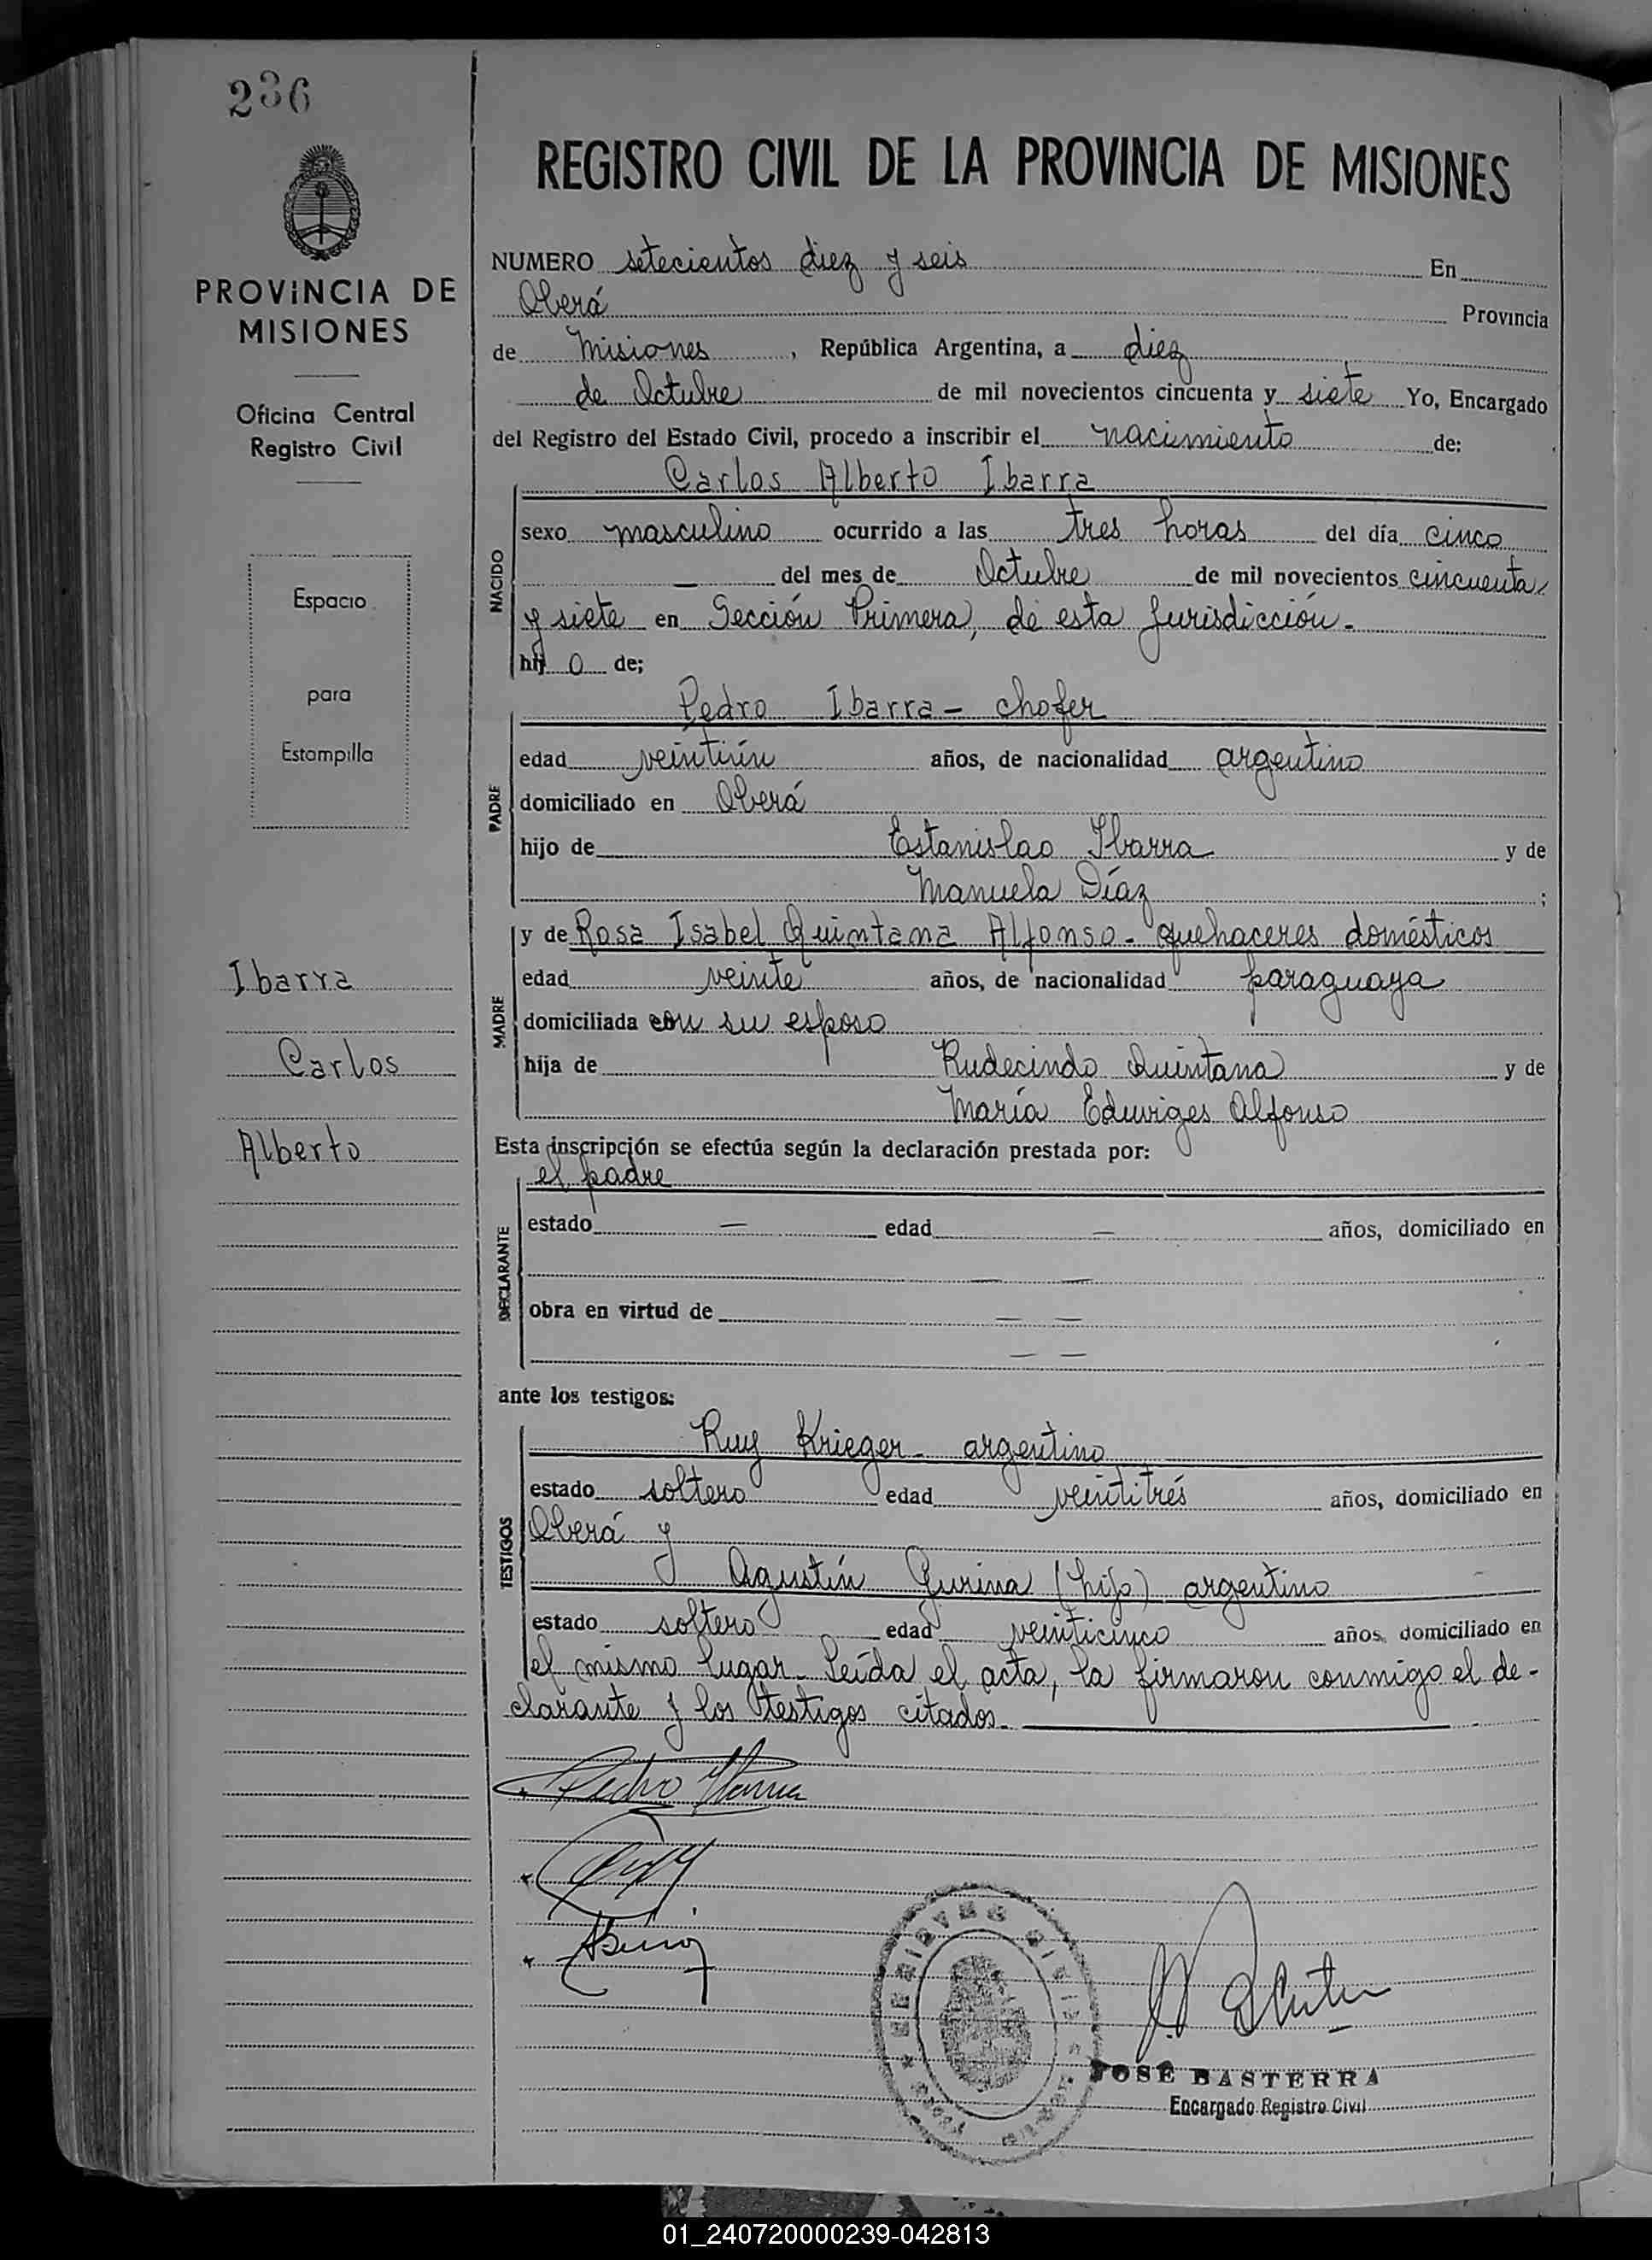 236
REGISTRO CIVIL DE LA PROVINCIA DE MISIONES
PROVINCIA DE
MISIONES
Oficina Central
Registro Civil
Espacio
para
Estampilla
Ibarra
Carlos
Alberto
NUMERO setecientos diez y seis En
Oberá Provincia
de Misiones, República Argentina, a diez
de Octubre de mil novecientos cincuenta y siete Yo, Encargado
del Registro del Estado Civil, procedo a inscribir el nacimiento de:
Carlos Alberto Ibarra
NACIDO
sexo masculino ocurrido a las tres horas del día cinco
— del mes de Octubre de mil novecientos cincuenta
y siete en Sección Primera, de esta Jurisdicción.-
hij o de;
Pedro Ibarra - chofer
PADRE
edad veintiún años, de nacionalidad argentino
domiciliado en Oberá
hijo de Estanislao Ibarra y de
Manuela Díaz ;
y de Rosa Isabel Quintana Alfonso - quehaceres domésticos
MADRE
edad veinte años, de nacionalidad paraguaya
domiciliada con su esposo
hija de Rudecindo Quintana y de
María Eduviges Alfonso
Esta inscripción se efectúa según la declaración prestada por:
el padre
DECLARANTE
estado — edad — años, domiciliado en
— —
obra en virtud de — —
— —
ante los testigos:
Ruy Krieger - argentino
TESTIGOS
estado soltero edad veintitrés años, domiciliado en
Oberá y
Agustín Gurina (hijo) argentino
estado soltero edad veinticinco años, domiciliado en
el mismo lugar - Leída el acta, la firmaron conmigo el de-
clarante y los testigos citados.
Pedro Ibarra
JOSÉ BASTERRA
Encargado Registro Civil
01_240720000239-042813